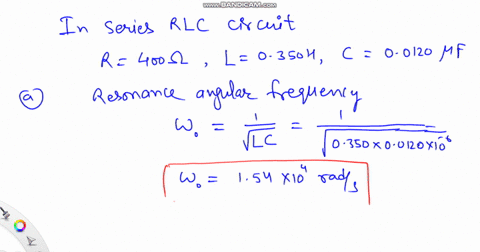 www.BANDICAM.com
In series RLC circuit
R = 400Ω , L = 0.350H, C = 0.0120 μF
(a) Resonance angular frequency
ω₀ = 1/√LC = 1/√0.350×0.0120×10⁻⁶
ω₀ = 1.54 ×10⁴ rad/s